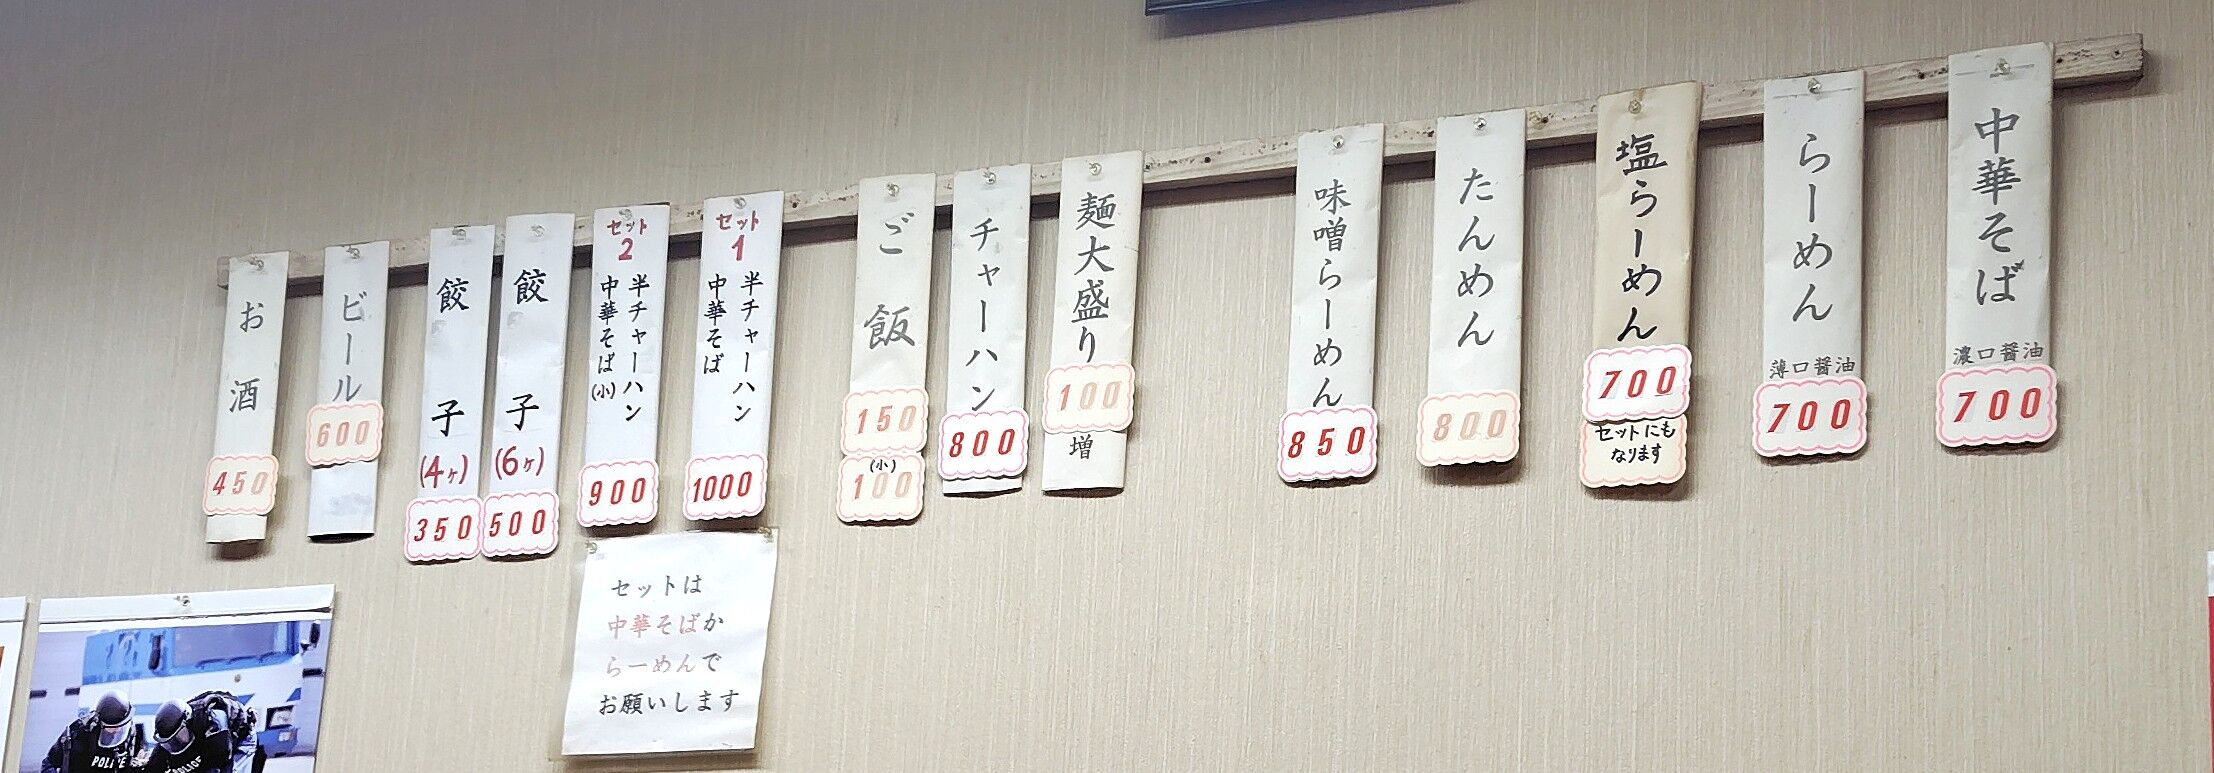 中華そば
濃口醤油
700
らーめん
薄口醤油
700
塩らーめん
700
セットにも
なります
たんめん
800
味噌らーめん
850
麺大盛り
100
増
チャーハン
800
ご飯
150
(小)
100
セット
1
半チャーハン
中華そば
1000
セット
2
半チャーハン
中華そば(小)
900
餃子
(6ヶ)
500
餃子
(4ヶ)
350
ビール
600
お酒
450
セットは
中華そばか
らーめんで
お願いします
POLICE
POLICE